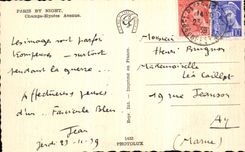 PARIS BY NIGHT.
Champs-Elysées Avenue.
Les images sont parfois
trompeuses – surtout
pendant la guerre ...
Affectueuses pensées
d'un
Jean
Jeudi 23-11-39
Monsieur
Henri
Mademoiselle
19 rue Jeanson
Ay
(Marne)
Rep. Int. - Imprimé en France.
PHOTOLUX